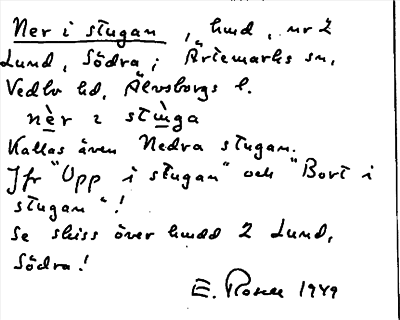 Ner i stugan, hmd, nr 2
Lund, Södra; Ärtemarks sn,
Vedbo hd, Älvsborgs l.
nèr i stùga
Kallas även Nedra stugan.
Jfr "Opp i stugan" och "Bort i
stugan"!
Se skiss över hmdd 2 Lund,
Södra!
E. Rosell 1949